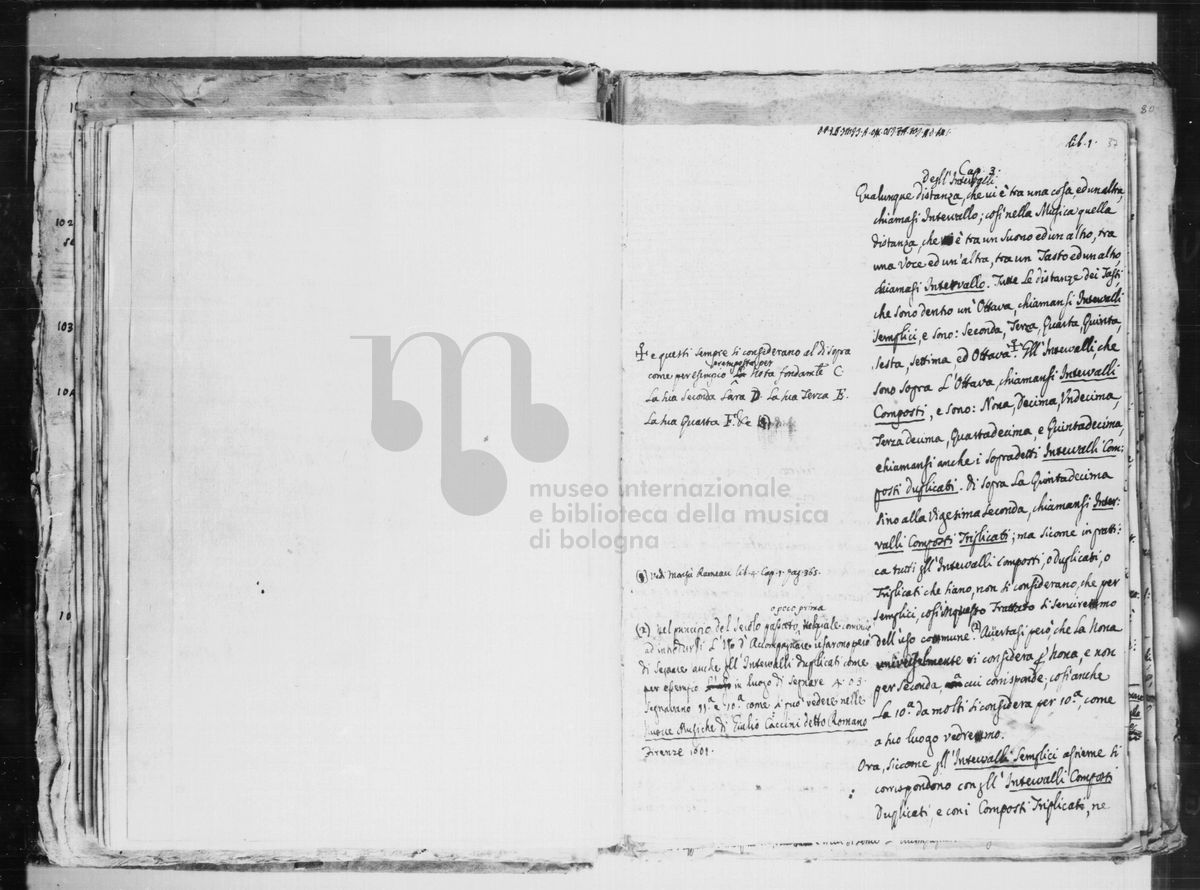 80
lib. 1. 37
Cap. 3.
Degl' Intervalli
Qualunque distanza, che vi è tra una cosa, ed un altra,
chiamasi Intervallo; così nella Musica quella
distanza, che è tra un Suono ed un altro, tra
una Voce ed un' altra, tra un Tasto ed un altro,
chiamasi Intervallo. Tutte le distanze dei Tasti,
che sono dentro un' Ottava, chiamansi Intervalli
Semplici, e sono: Seconda, Terza, Quarta, Quinta,
Sesta, Settima ed Ottava. Gll' Intervalli, che
sono sopra L'Ottava, chiamansi Intervalli
Composti, e sono: Nona, Decima, Undecima,
Terzadecima, Quartadecima, e Quintadecima,
e chiamansi anche i sopradetti Intervalli Com:
posti duplicati. Di sopra La Quintadecima
sino alla Vigesima Seconda, chiamansi Inter:
valli Composti Triplicati; ma sicome in pratti:
ca tutti gll' Intervalli Composti, o duplicati, o
Triplicati che siano, non si considerano, che per
semplici, così in questo Trattato si serviremmo
dell' uso commune. (2) Avertasi però che La Nona
universelmente si considera p Nona, e non
per Seconda, cui corrisponde; così anche
La 10.a da molti si considera per 10.a, come
a suo luogo vedremmo.
Ora, siccome gll' Intervalli Semplici assieme si
corrispondono con gll' Intervalli Composti
Duplicati, e con i Composti Triplicati, ne
e questi sempre si considerano al di sopra
presupposta per
come per esempio La Nota fondamte C
La sua Seconda sarà D. La sua Terza E.
La sua Quarta F. &c (1)
(1) Vedi Monsù Rameau lib. 4. Cap. 1. pag. 365.
o poco prima
(2) Nel principio del Secolo passato, nel quale cominciò
ad introdursi L'Uso d' Accompagnare usarono però
di Segnare anche gll' Intervalli Duplicati come
per esempio in luogo di Segnare 4. o 3.
Segnavano 11.a e 10.a come si può vedere nelle
Nuove Musiche di Giulio Caccini detto Romano
Firenze 1601.
102
103
10
museo internazionale
e biblioteca della musica
di bologna